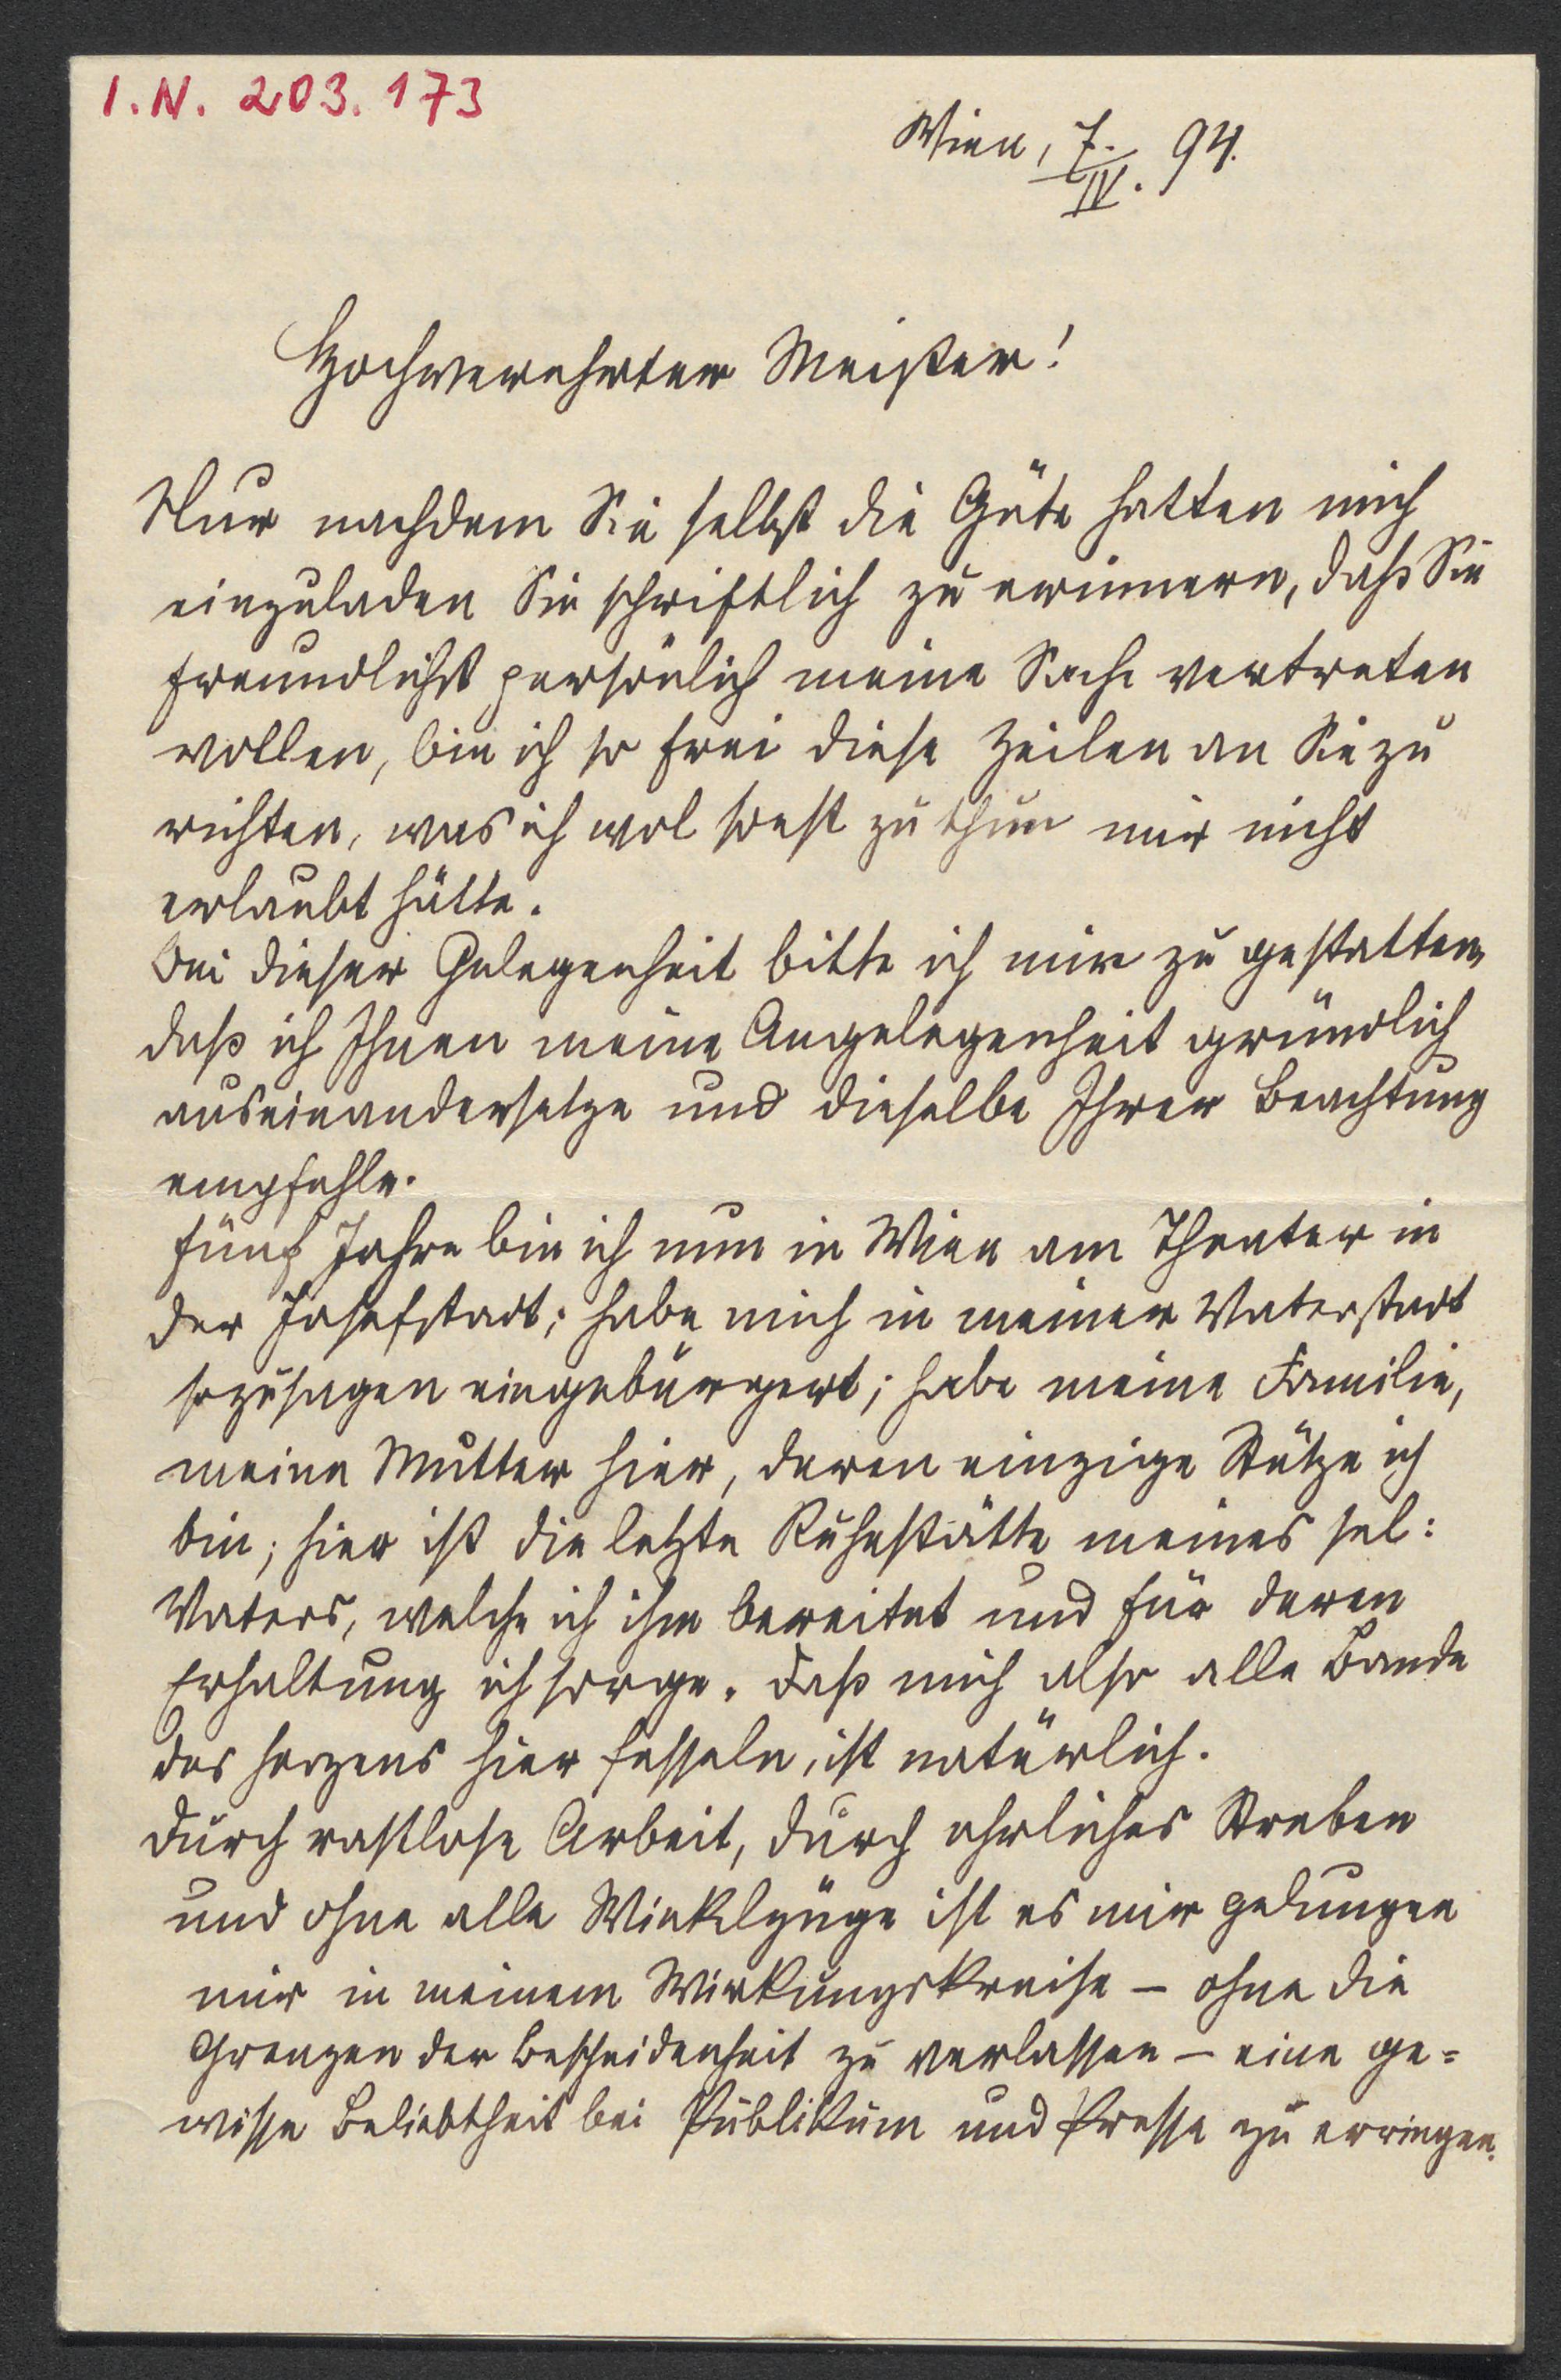 I.N. 203.173
Wien, 7./IV. 94.
Hochverehrter Meister!
Nur nachdem Sie selbst die Güte hatten mich
einzuladen Sie schriftlich zu erinnern, daß Sie
freundlichst persönlich meine Sache vertreten
wollen, bin ich so frei diese Zeilen an Sie zu
richten, was ich wol sonst zu thun mir nicht
erlaubt hätte.
Bei dieser Gelegenheit bitte ich mir zu gestatten,
daß ich Ihnen meine Angelegenheit gründlich
auseinandersetze und dieselbe Ihrer Beachtung
empfehle.
Fünf Jahre bin ich nun in Wien am Theater in
der Josefstadt; habe mich in meiner Vaterstadt
sozusagen eingebürgert; habe meine Familie,
meine Mutter hier, deren einzige Stütze ich
bin; hier ist die letzte Ruhestätte meines sel:
Vaters, welche ich ihm bereitet und für deren
Erhaltung ich sorge. Daß mich also alle Bande
des Herzens hier fesseln, ist natürlich.
Durch rastlose Arbeit, durch ehrliches Streben
und ohne alle Winkelzüge ist es mir gelungen
mir in meinem Wirkungskreise – ohne die
Grenzen der Bescheidenheit zu verlassen – eine ge=
wisse Beliebtheit bei Publikum und Presse zu erringen.